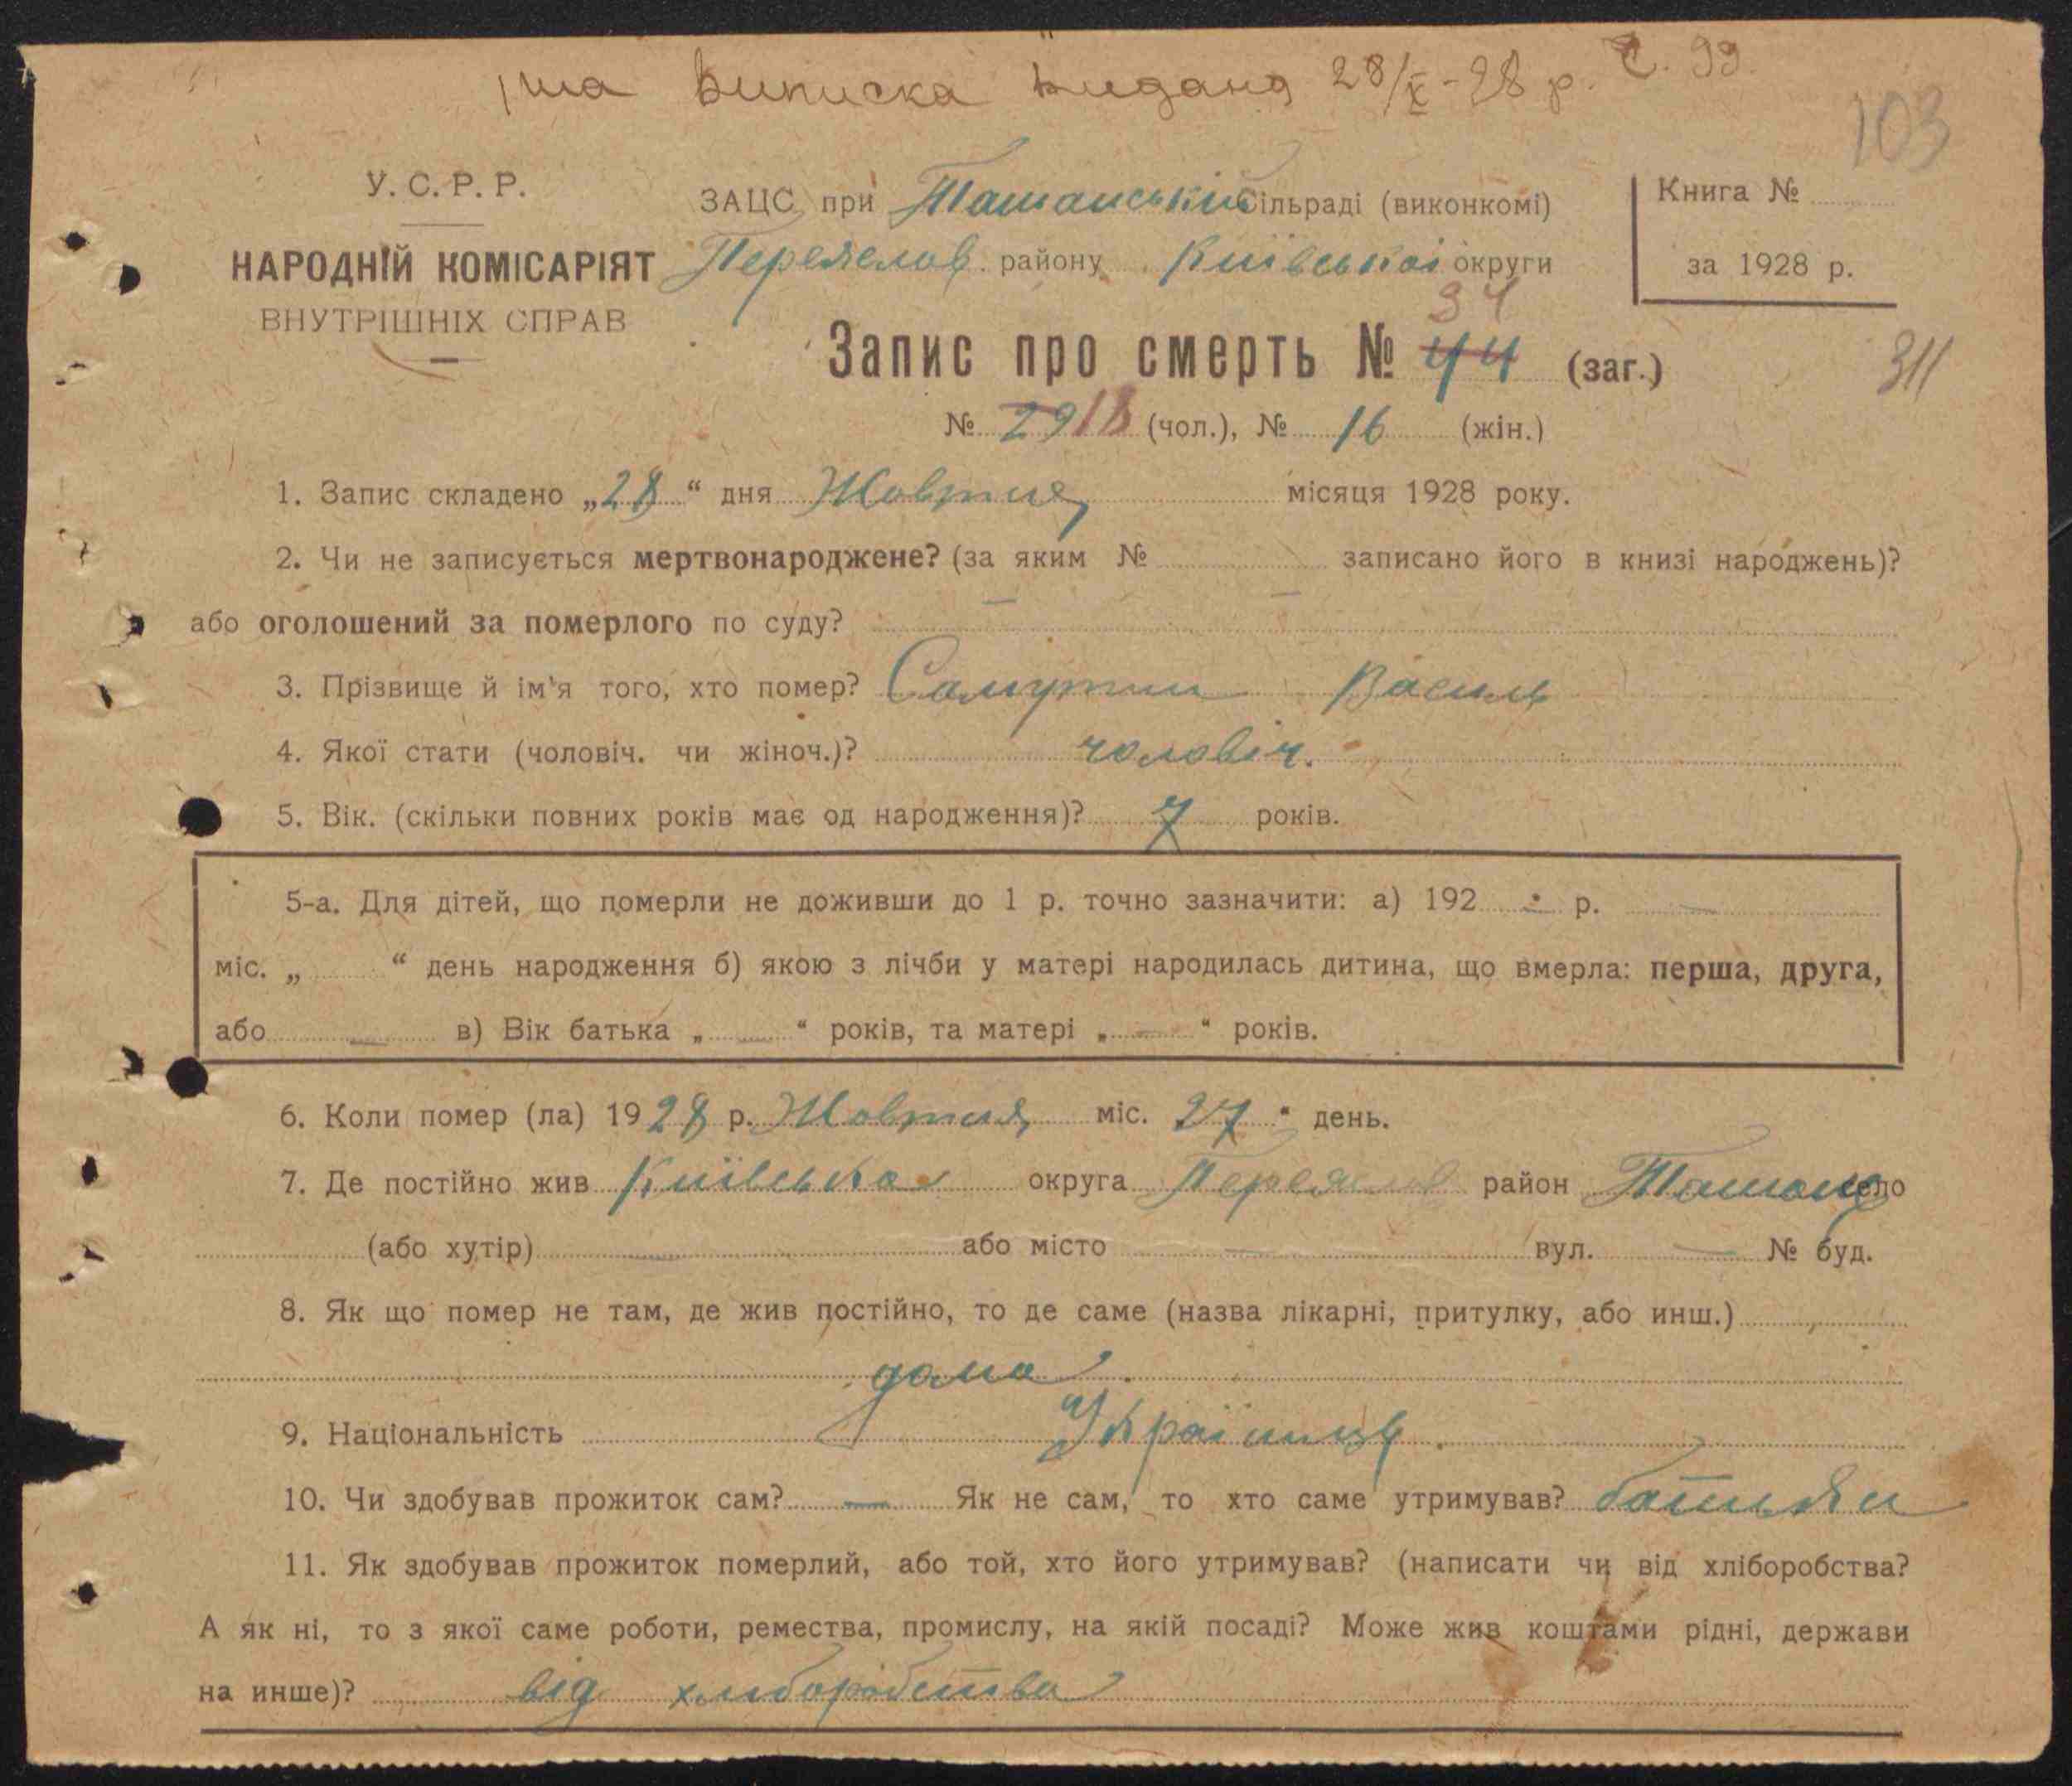 1ша виписка видана 28/X-28 р. Č. 99.
103
У. С. Р. Р.
НАРОДНІЙ КОМІСАРІЯТ
ВНУТРІШНІХ СПРАВ
ЗАЦС при Ташанській сільраді (виконкомі)
Переяслов. району Київської округи
Книга №
за 1928 р.
34
Запис про смерть № 44 (заг.)
311
№ 29 18 (чол.), № 16 (жін.)
1. Запис складено „28“ дня Жовтня місяця 1928 року.
2. Чи не записується мертвонароджене? (за яким № записано його в книзі народжень)?
або оголошений за померлого по суду?
3. Прізвище й ім'я того, хто помер? Самутин Василь
4. Якої стати (чоловіч. чи жіноч.)? чоловіч.
5. Вік. (скільки повних років має од народження)? 7 років.
5-а. Для дітей, що померли не доживши до 1 р. точно зазначити: а) 192 — р. —
міс. „ “ день народження б) якою з лічби у матері народилась дитина, що вмерла: перша, друга,
або — в) Вік батька „ — “ років, та матері „ — “ років.
6. Коли помер (ла) 1928 р. Жовтня міс. 27 “ день.
7. Де постійно жив Київська округа Переяслов район Ташань село
(або хутір) — або місто — вул. — № буд.
8. Як що помер не там, де жив постійно, то де саме (назва лікарні, притулку, або инш.)
дома
9. Національність Українець.
10. Чи здобував прожиток сам? — Як не сам, то хто саме утримував? батьки
11. Як здобував прожиток померлий, або той, хто його утримував? (написати чи від хліборобства?
А як ні, то з якої саме роботи, ремества, промислу, на якій посаді? Може жив коштами рідні, держави
на инше)? від хліборобства